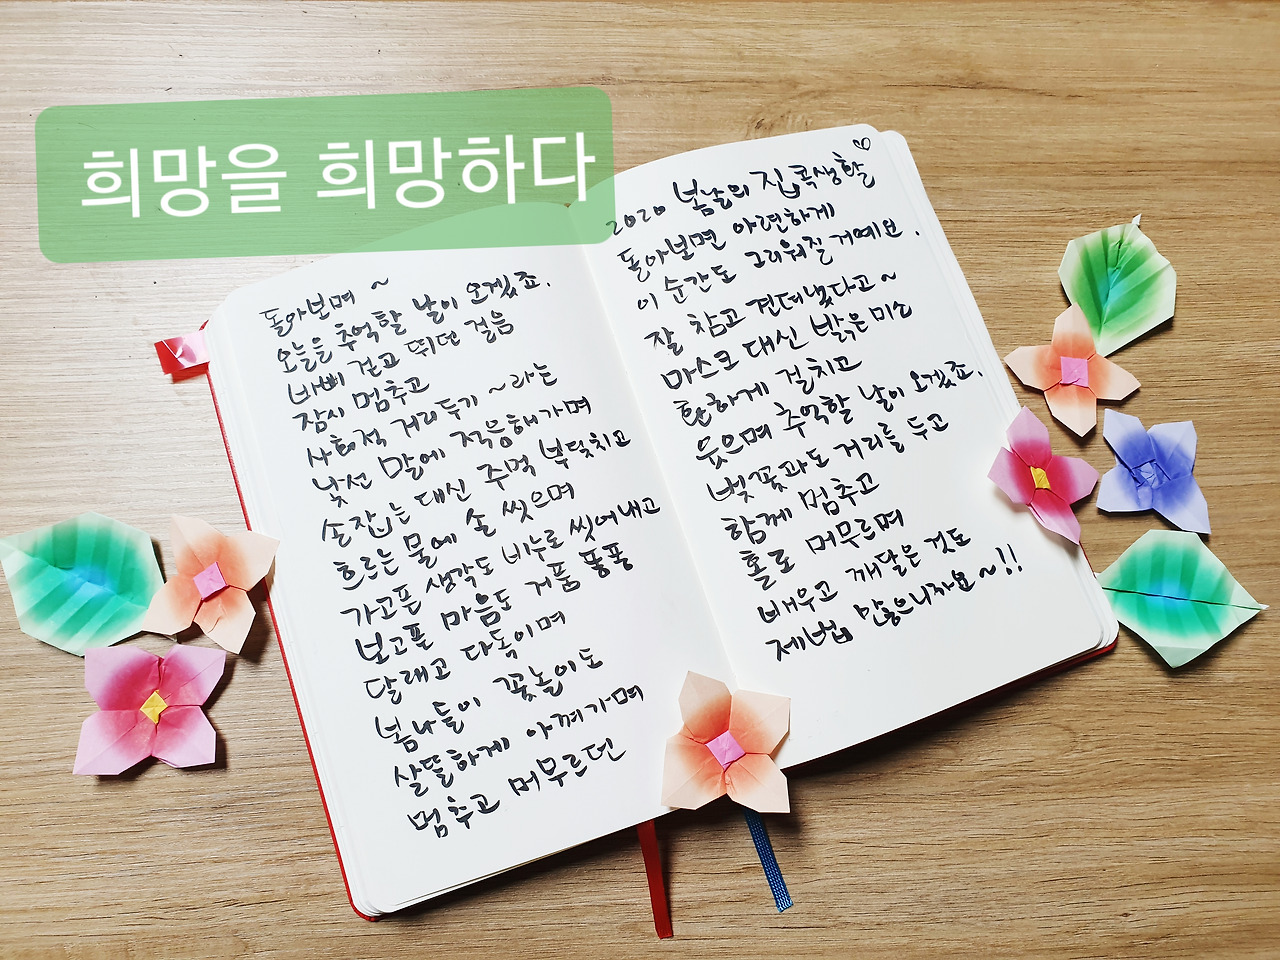 희망을 희망하다
돌아보며 ~
오늘을 추억할 날이 오겠죠.
바삐 걷고 뛰던 걸음
잠시 멈추고
사회적 거리두기 ~라는
낯선 말에 적응해가며
손잡는 대신 주먹 부딪치고
흐르는 물에 손 씻으며
가고픈 생각도 비누로 씻어내고
보고픈 마음도 거품 퐁퐁
달래고 다독이며
봄나들이 꽃놀이도
살뜰하게 아껴가며
멈추고 머무르던
2020 봄날의 집콕생활 ♡
돌아보면 아련하게
이 순간도 그리워질 거예요.
잘 참고 견뎌냈다고~
마스크 대신 밝은 미소
환하게 걸치고
웃으며 추억할 날이 오겠죠.
벚꽃과도 거리를 두고
함께 멈추고
홀로 머무르며
배우고 깨달은 것도
제법 많으니까요~!!